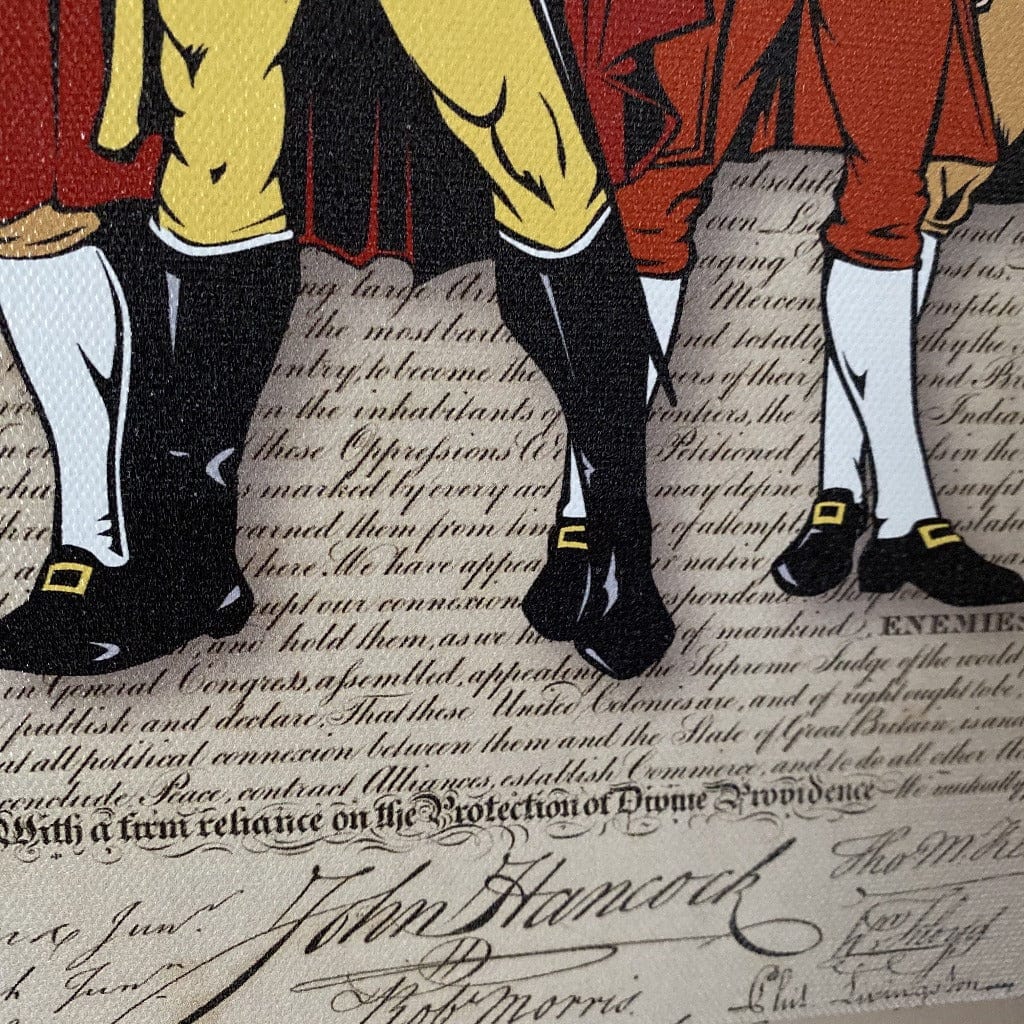 absolute
own L
aging Mercen
ng large Ar complete
the most barb nd totally
ntry, to become the ers of their nd Br
n the inhabitants o rontiers, the Indian
these Oppressions We Petitioned f s in the
marked by every act may define
earned them from tim e of attempt
here. We have appea r native
upt our connexion spondence
and hold them, as we h of mankind, ENEMIES
in General Congress, assembled, appealing the Supreme Judge of the world
publish and declare, That these United Colonies are, and of right ought to be
all political connexion between them and the State of Great Britain, is and
conclude Peace, contract Alliances, establish Commerce, and to do all other th
With a firm reliance on the Protection of Divine Providence We mutually
Junr. John Hancock Tho M. Ke
Junr. Robt Morris. Wm Floyd
Phil. Livingston